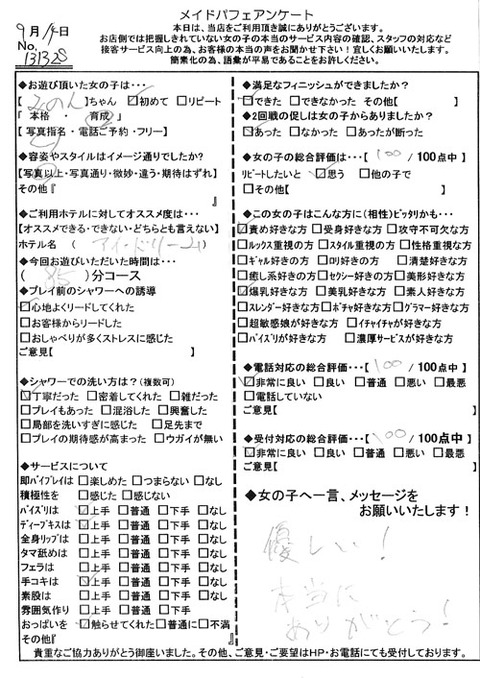 メイドパフェアンケート
9月14日
No. 131328
本日は、当店をご利用頂き誠にありがとうございます。
お店側では把握しきれていない女の子の本当のサービス内容の確認、スタッフの対応など
接客サービス向上の為、お客様の本当の声をお聞かせ下さい!宜しくお願いいたします。
簡素化の為、語彙が平易であることをお許しください。
◆お遊び頂いた女の子は・・・
【 みのん 】ちゃん ☑初めて □リピート
「 本格 ・ 育成 」
【 写真指名 ・ 電話ご予約 ・ フリー 】
◆容姿やスタイルはイメージ通りでしたか?
【写真以上・写真通り・微妙・違う・期待はずれ】
その他『 』
◆ご利用ホテルに対してオススメ度は・・・
【オススメできる・できない・どちらとも言えない】
ホテル名 ( アイ・ドリーム )
◆今回お遊びいただいた時間は・・・
( 85 )分コース
◆プレイ前のシャワーへの誘導
☑心地よくリードしてくれた
□お客様からリードした
□おしゃべりが多くストレスに感じた
ご意見【 】
◆シャワーでの洗い方は?(複数可)
☑丁寧だった □密着してくれた □雑だった
□プレイもあった □混浴した □興奮した
□局部を洗いすぎに感じた □足先まで
□プレイの期待感が高まった □ウガイが無い
◆サービスについて
即パイプレイは □楽しめた □つまらない □なし
積極性を □感じた □感じない
パイズリは ☑上手 □普通 □下手 □なし
ディープキスは ☑上手 □普通 □下手 □なし
全身リップは □上手 □普通 □下手 □なし
タマ舐めは □上手 □普通 □下手 □なし
フェラは □上手 □普通 □下手 □なし
手コキは ☑上手 □普通 □下手 □なし
素股は □上手 □普通 □下手 □なし
雰囲気作り □上手 □普通 □下手
おっぱいを ☑触らせてくれた □普通に □不満
その他『 』
◆満足なフィニッシュができましたか?
□できた □できなかった その他【 】
◆2回戦の促しは女の子からありましたか?
☑あった □なかった □あったが断った
◆女の子の総合評価は・・・【 100 / 100点中】
リピートしたいと ☑思う □他の子で
□その他【 】
◆この女の子はこんな方に(相性)ピッタリかも・・・
☑責め好きな方 □受身好きな方 □攻守不可欠な方
□ルックス重視の方 □スタイル重視の方 □性格重視な方
□ギャル好きの方 □ロリ好きの方 □清楚好きな方
□癒し系好きの方 □セクシー好きの方 □美形好きな方
☑爆乳好きな方 □美乳好きな方 □素人好きな方
□スレンダー好きな方 □ポチャ好きな方 □グラマー好きな方
□超敏感娘が好きな方 □イチャイチャが好きな方
□パイズリが好きな方 □濃厚サービスが好きな方
◆電話対応の総合評価・・・【 100 / 100点中】
☑非常に良い □良い □普通 □悪い □最悪
□電話していない
ご意見【 】
◆受付対応の総合評価・・・【 100 / 100点中】
☑非常に良い □良い □普通 □悪い □最悪
ご意見【 】
◆女の子へ一言、メッセージを
お願いいたします!
優しい!
本当に
ありがとう!
貴重なご協力ありがとう御座いました。その他、ご意見・ご要望はHP・お電話にても受付しております。